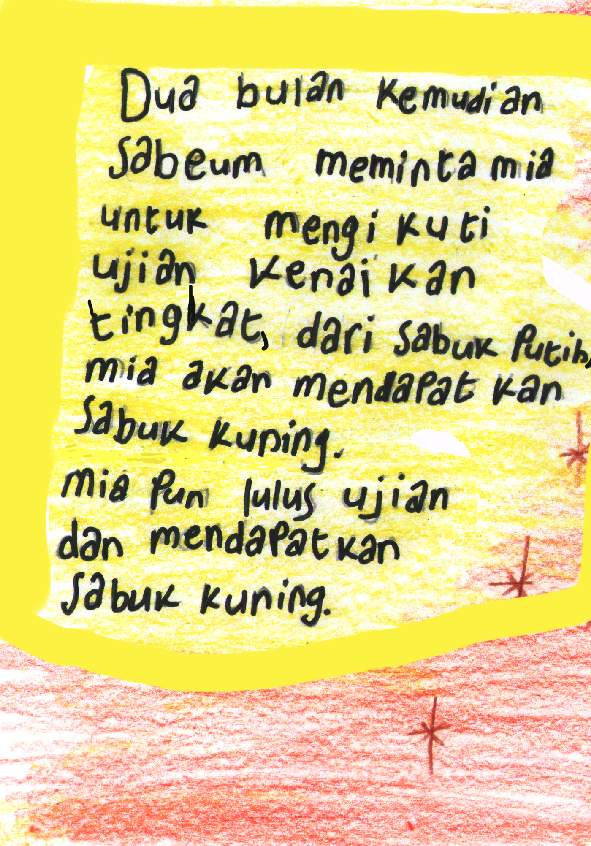 Dua bulan kemudian
Sabeum meminta mia
untuk mengikuti
ujian kenaikan
tingkat, dari sabuk putih,
mia akan mendapatkan
sabuk kuning.
mia pun lulus ujian
dan mendapatkan
sabuk kuning.